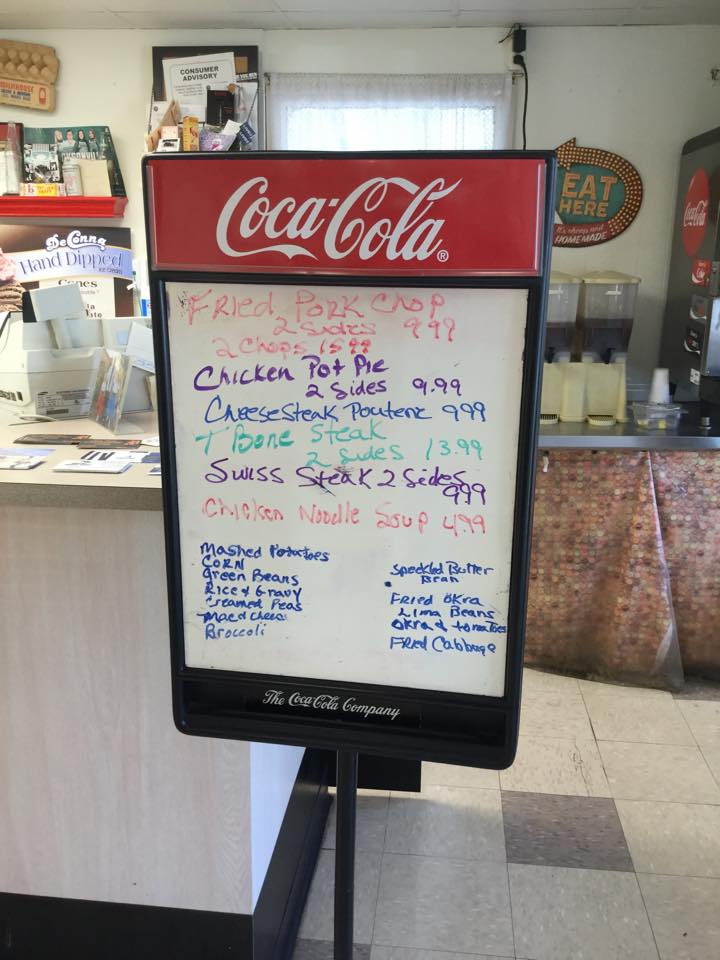 CONSUMER
ADVISORY
DeConna
Hand Dipped
Ice Cream
Cones
EAT
HERE
It's cheap and
HOMEMADE
Coca-Cola
Coca-Cola®
Fried Pork Chop
2 Sides 999
2 Chops 1599
Chicken Pot Pie
2 Sides 9.99
CheeseSteak Pouterie 999
T Bone Steak
2 Sides 13.99
Swiss Steak 2 Sides
999
Chicken Noodle Soup 4.99
Mashed Potatoes
Corn
Green Beans
Rice & Gravy
Creamed Peas
Mac & Cheese
Broccoli
Speckled Butter
Bean
Fried Okra
Lima Beans
Okra & tomatoes
Fried Cabbage
The Coca-Cola Company